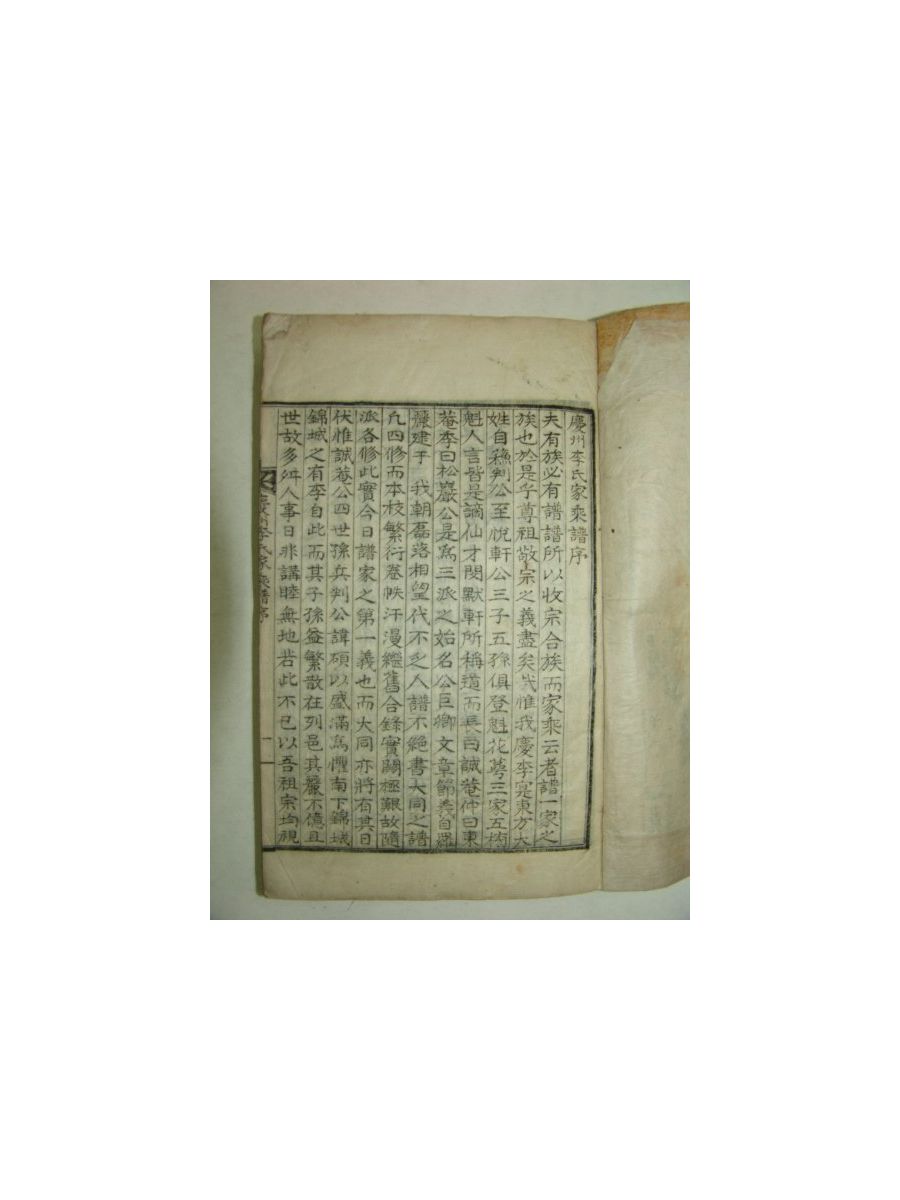 慶州李氏家乘譜序
夫有族必有譜譜所以收宗合族而家乘云者譜一家之
族也於是乎尊祖敬宗之義盡矣哉惟我慶李寔東方大
姓自蘓判公至悅軒公三子五孫俱登魁花萼三家五
魁人言皆是謫仙才閔默軒所稱道而長曰誠菴仲曰東
菴季曰松巖公是爲三派之始名公巨卿文章節義自羅
麗建于 我朝磊落相望代不乏人譜不絶書大同之譜
凢四修而本校繁衍卷帙汗漫繼舊合錄實關極艱故隨
派各修此實今日譜家之第一義也而大同亦將有其日
伏惟誠菴公四世孫兵判公諱碩以盛滿爲懼南下錦城
錦城之有李自此而其子孫益繁散在列邑其麗不億且
世故多舛人事日非講睦無地若此不已以吾祖宗均視
慶州李氏家乘譜序 一